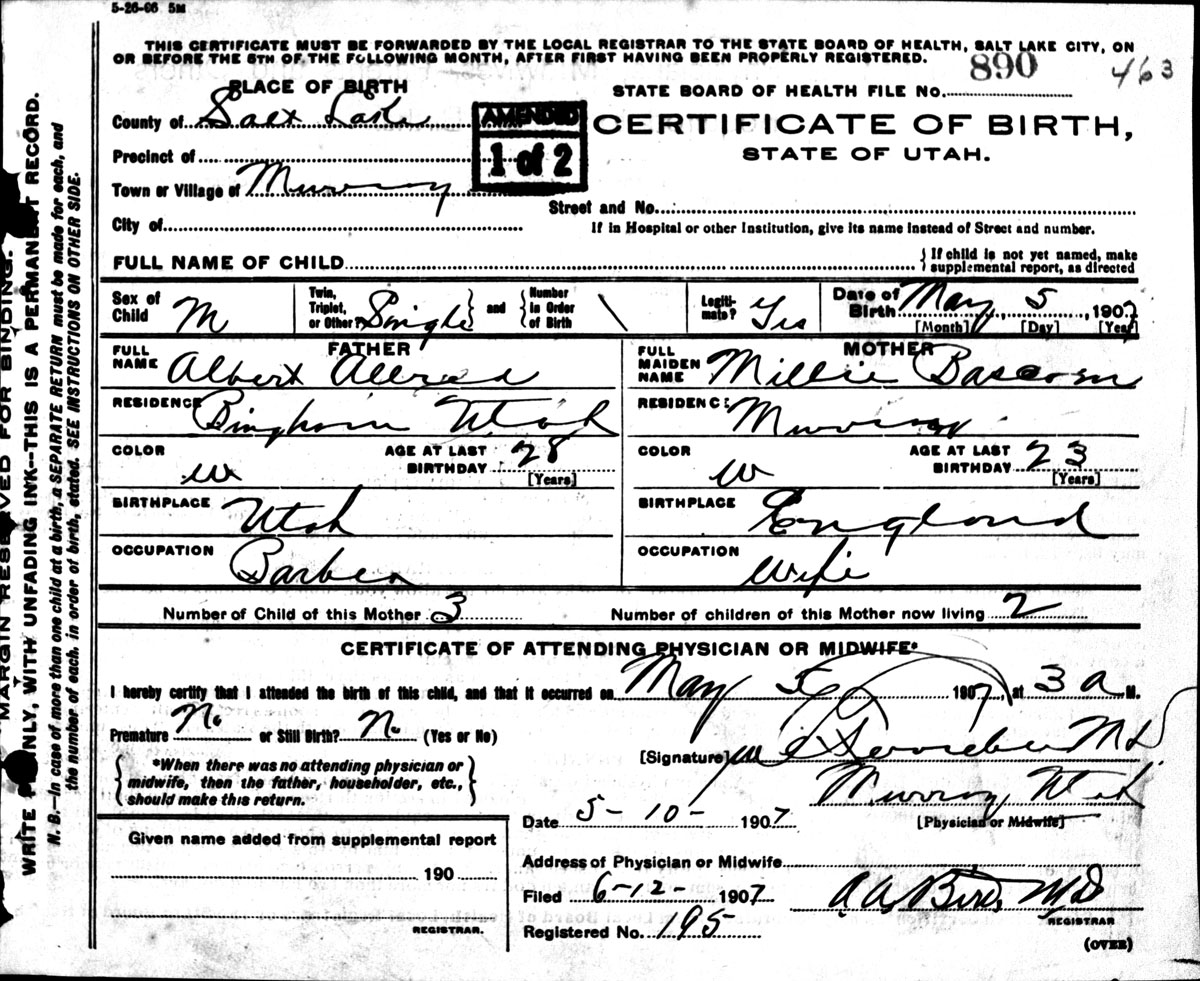 5-26-06 5M
THIS CERTIFICATE MUST BE FORWARDED BY THE LOCAL REGISTRAR TO THE STATE BOARD OF HEALTH, SALT LAKE CITY, ON
OR BEFORE THE 5TH OF THE FOLLOWING MONTH, AFTER FIRST HAVING BEEN PROPERLY REGISTERED.
890 463
PLACE OF BIRTH
STATE BOARD OF HEALTH FILE NO.
County of Salt Lake
AMENDED
1 of 2
CERTIFICATE OF BIRTH,
STATE OF UTAH.
Precinct of
Town or Village of Murray
Street and No.
City of
If in Hospital or other Institution, give its name instead of Street and number.
FULL NAME OF CHILD
If child is not yet named, make
supplemental report, as directed
Sex of Child M
Twin, Triplet, or Other? Single and Number in Order of Birth \
Legitimate? Yes
Date of Birth May 5, 1907
[Month] [Day] [Year]
FATHER
FULL NAME Albert Allred
RESIDENCE Bingham Utah
COLOR W
AGE AT LAST BIRTHDAY 28
[Years]
BIRTHPLACE Utah
OCCUPATION Barber
MOTHER
FULL MAIDEN NAME Millie Bascom
RESIDENCE Murray
COLOR W
AGE AT LAST BIRTHDAY 23
[Years]
BIRTHPLACE England
OCCUPATION Wife
Number of Child of this Mother 3
Number of children of this Mother now living 2
CERTIFICATE OF ATTENDING PHYSICIAN OR MIDWIFE*
I hereby certify that I attended the birth of this child, and that it occurred on May 5 1907, at 3 a M.
Premature No or Still Birth? No (Yes or No)
[Signature] M D
*When there was no attending physician or
midwife, then the father, householder, etc.,
should make this return.
Murray Utah
[Physician or Midwife]
Date 5-10-1907
Given name added from supplemental report
190
REGISTRAR.
Address of Physician or Midwife
Filed 6-12-1907
A A Bird, M D
REGISTRAR
Registered No. 195
(OVER)
MARGIN RESERVED FOR BINDING.
WRITE PLAINLY, WITH UNFADING INK--THIS IS A PERMANENT RECORD.
N. B.--In case of more than one child at a birth, a SEPARATE RETURN must be made for each, and
the number of each, in order of birth, stated. SEE INSTRUCTIONS ON OTHER SIDE.